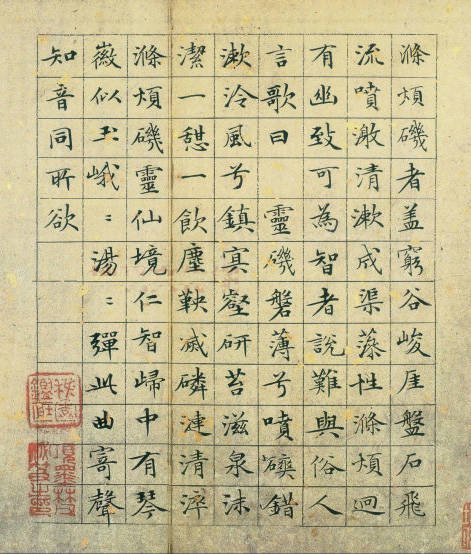 滌煩磯者盖窮谷峻崖盤石飛
流噴激清漱成渠澡性滌煩迥
有幽致可為智者說難與俗人
言歌曰 靈磯磐薄兮噴礇錯
漱泠風兮鎮冥壑研苔滋泉沫
潔一憇一飲塵鞅滅磷漣清淬
滌煩磯靈仙境仁智歸中有琴
徽似玉峨〻湯〻彈此曲寄聲
知音同所欲